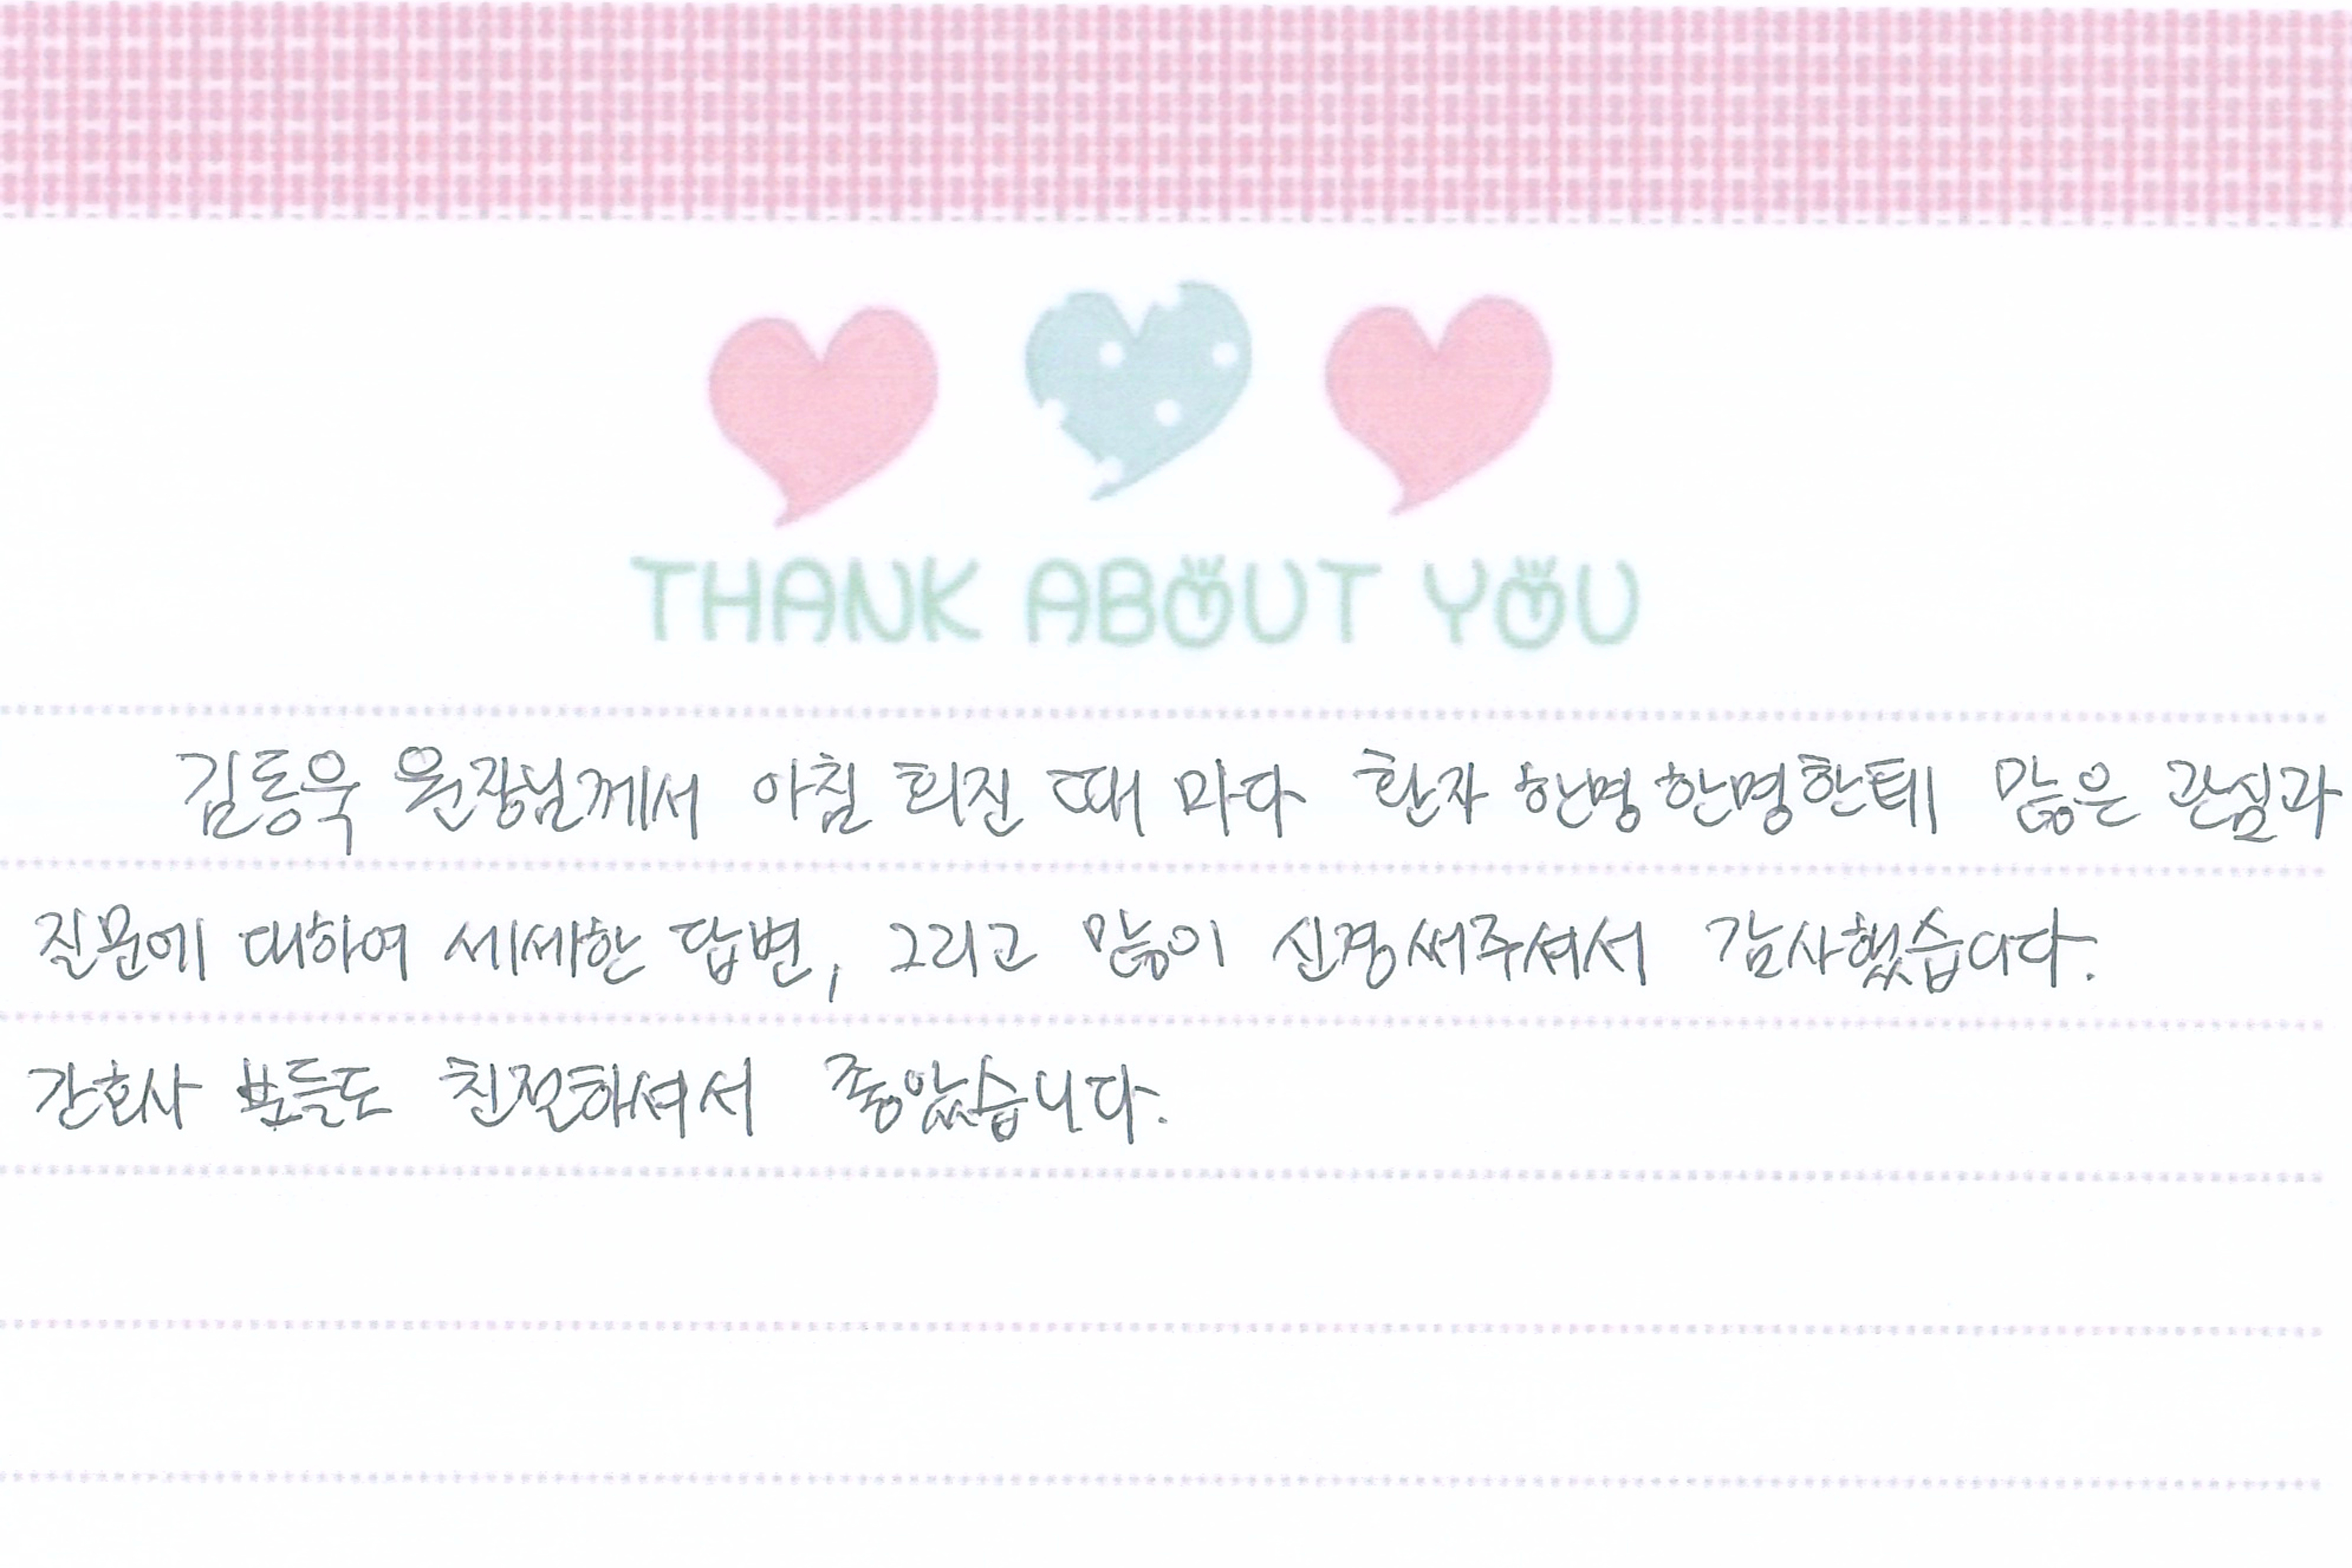 THANK ABOUT YOU
김동욱 원장님께서 아침 회진 때 마다 환자 한명 한명한테 많은 관심과
질문에 대하여 세세한 답변, 그리고 많이 신경써주셔서 감사했습니다.
간호사 분들도 친절하셔서 좋았습니다.